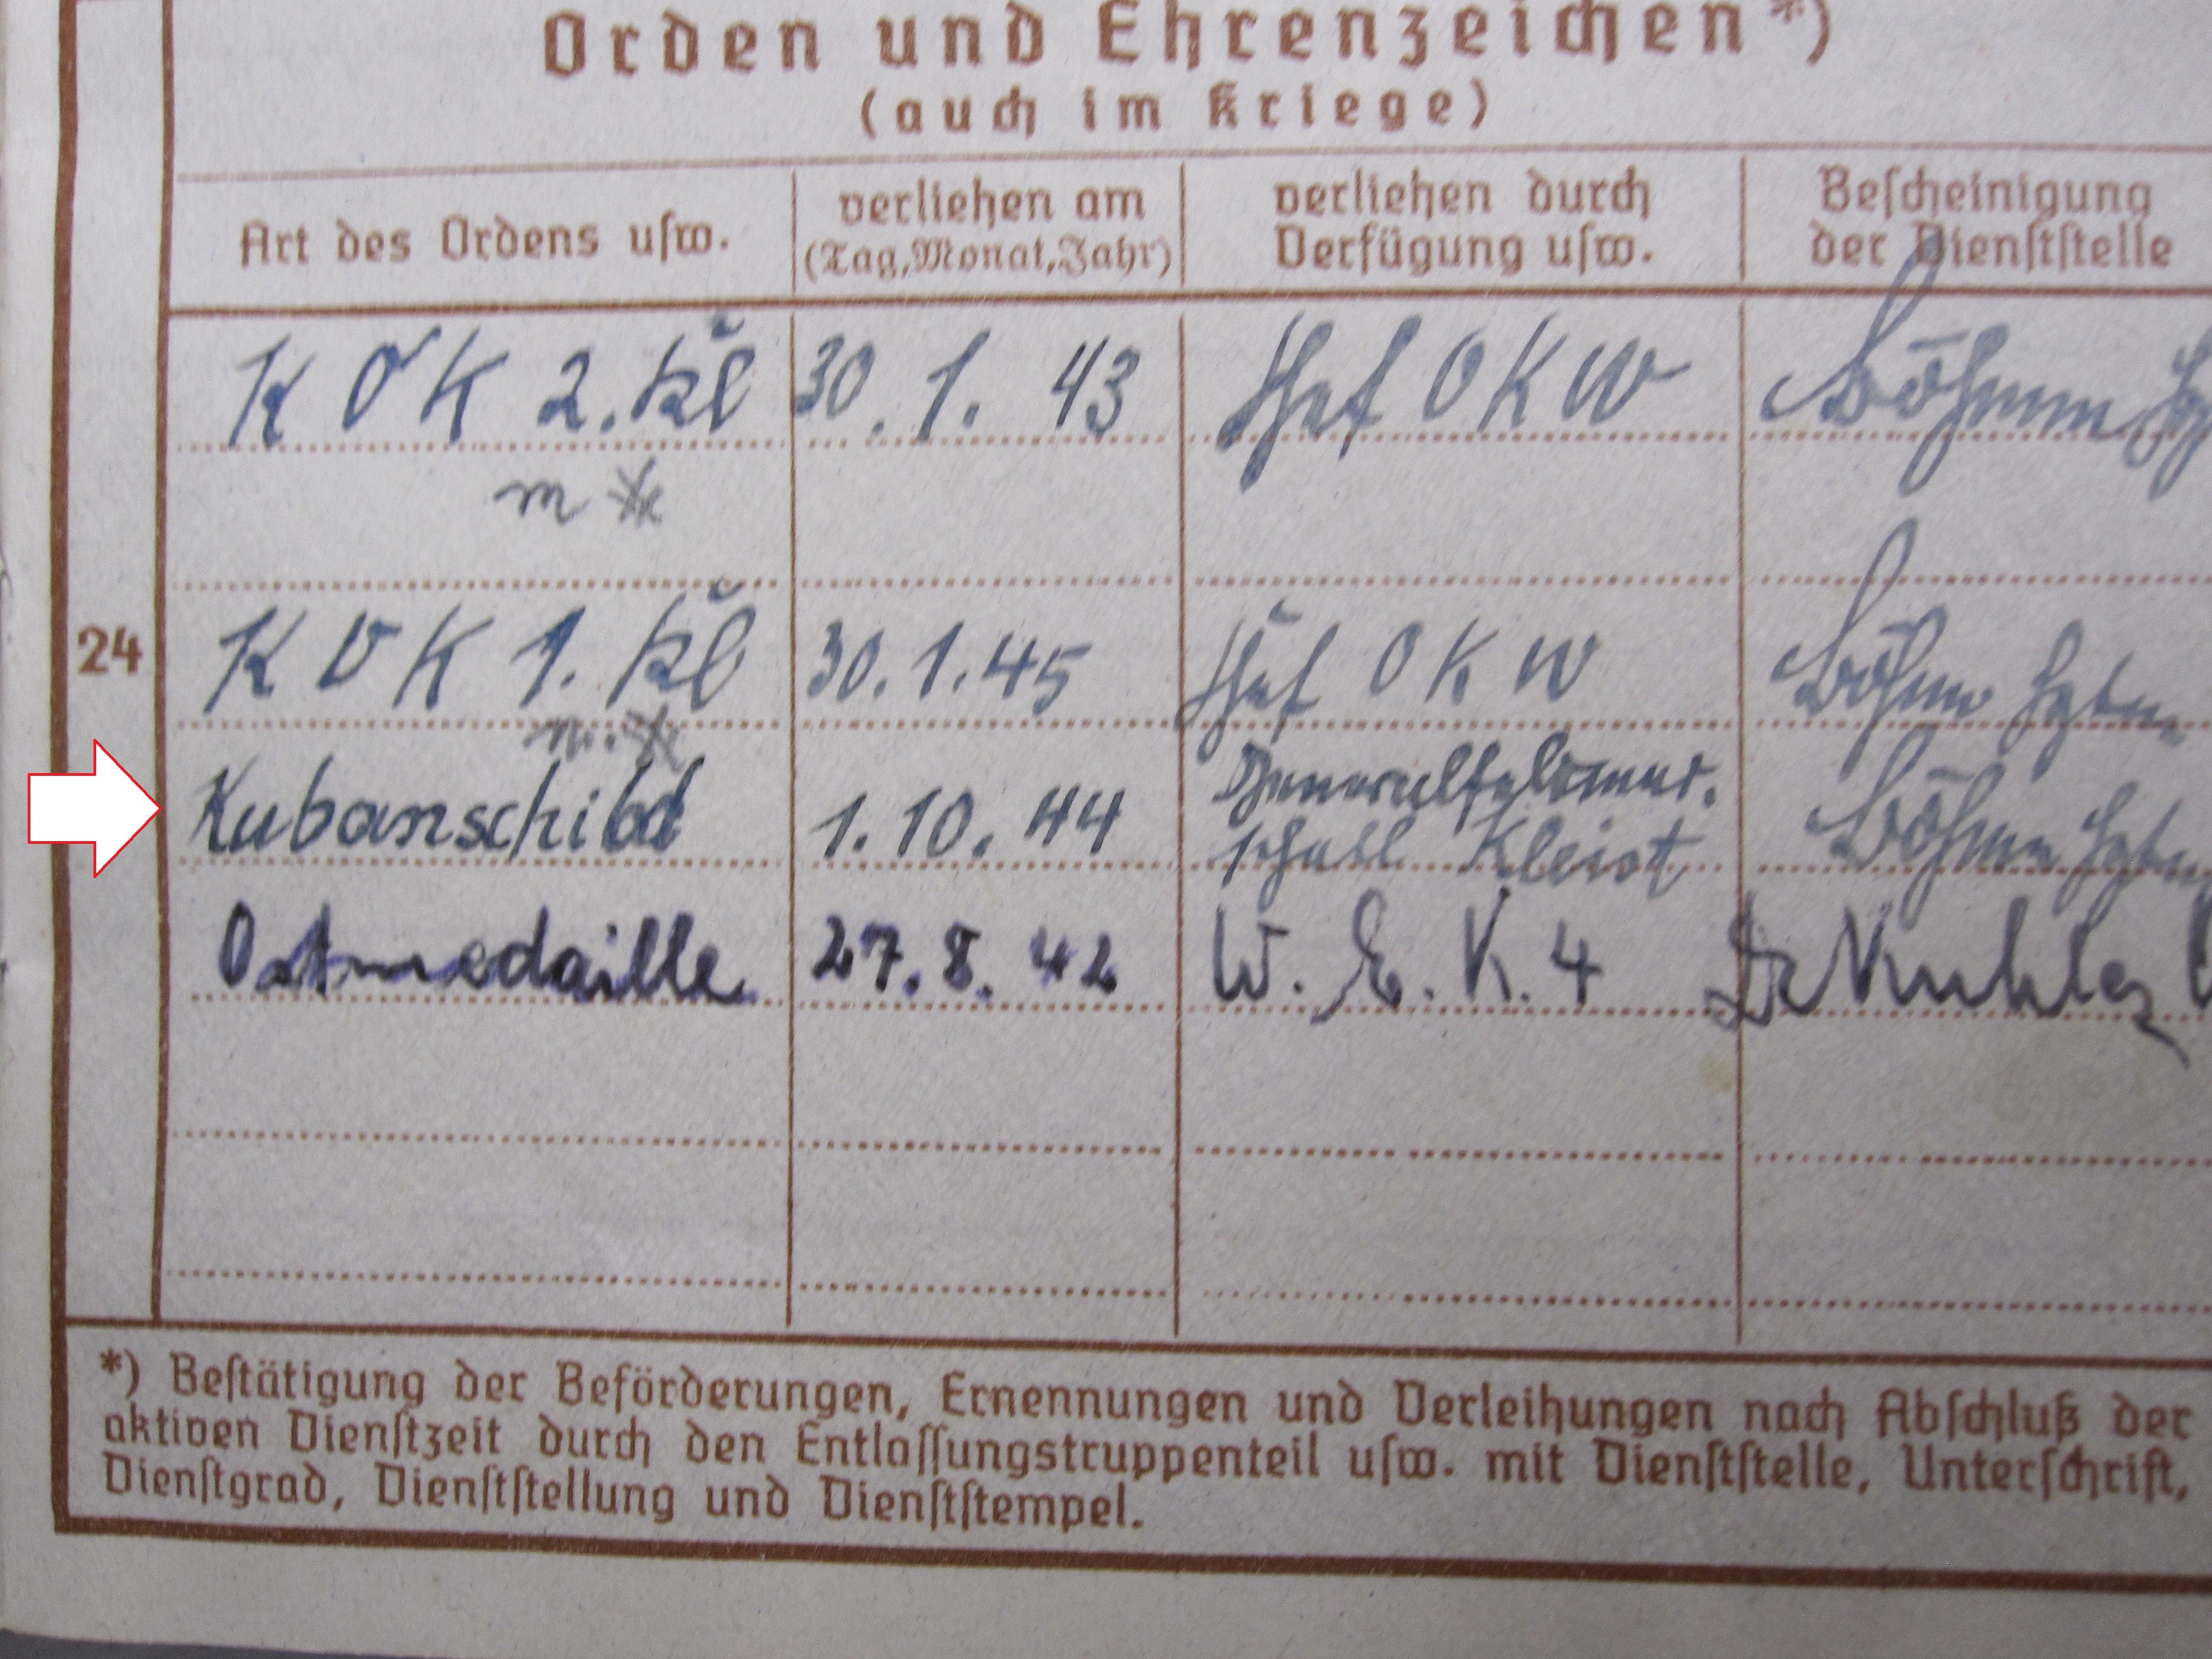 Orden und Ehrenzeichen*)
(auch im Kriege)
Art des Ordens usw.
verliehen am
(Tag, Monat, Jahr)
verliehen durch
Verfügung usw.
Bescheinigung
der Dienststelle
24
K V K 2. Kl 30. 1. 43 Chef O K W Böhmm
m
K V K 1. Kl 30.1.45 Chef O K W Böhm Hptm
m.
Kubanschild 1.10.44 Generalfeldmar.
schall Kleist Böhm Hptm
Ostmedaille 27.8.42 W. E. K. 4 Dr
*) Bestätigung der Beförderungen, Ernennungen und Verleihungen nach Abschluß der
aktiven Dienstzeit durch den Entlassungstruppenteil usw. mit Dienststelle, Unterschrift,
Dienstgrad, Dienststellung und Dienststempel.